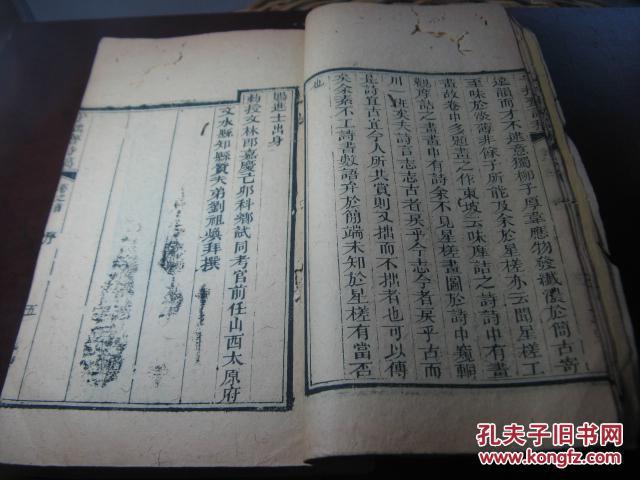 遠韻而才不逮意獨柳子厚韋應物發纖濃於簡古寄
至味於淡薄非餘子所能及余於星槎亦云聞星槎工
畫故卷中多題畫之作東坡云味摩詰之詩詩中有畫
觀摩詰之畫畫中有詩余不見星槎畫圖於詩中窺輞
川一班矣夫詩言志志古者戾乎今志今者戾乎古而
詩宜古宜今人所共賞則又拙而不拙者也可以傳
矣余素不工詩書數語弁於簡端未知於星槎有當否
也
賜進士出身
勅授文林郎嘉慶己卯科鄉試同考官前任山西太原府
文水縣知縣夫弟劉祖拜撰
序
五
孔夫子旧书网
www.kongfz.com